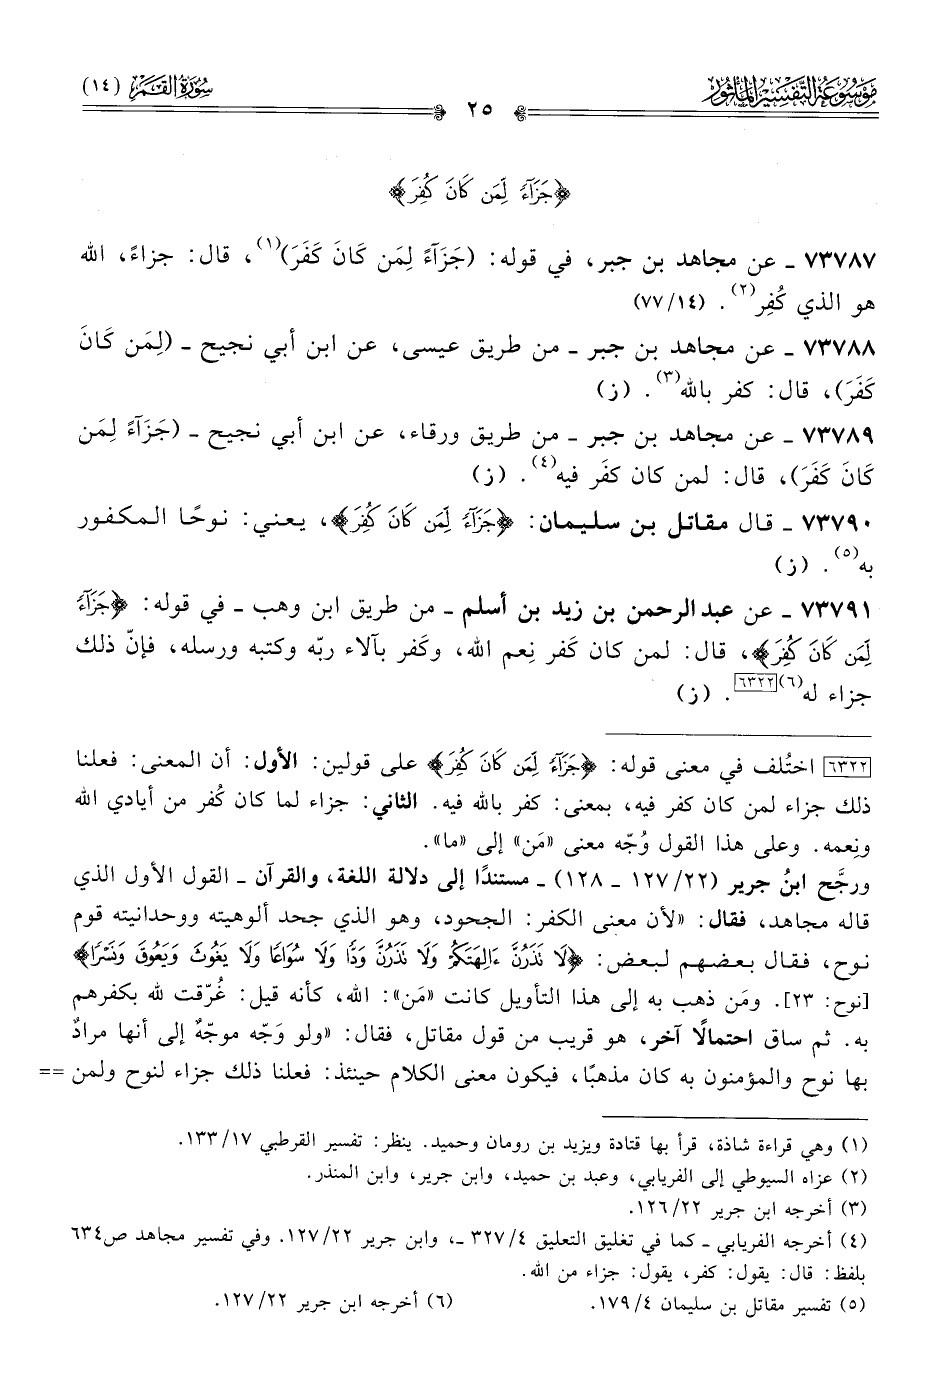 مَوْسُوعَة التَّفْسِير المَأْثُور
سُورَةُ القَمَر (١٤)
٢٥
﴿جَزَآءً لِّمَن كَانَ كُفِرَ﴾
٧٣٧٨٧ ـ عن مجاهد بن جبر، في قوله: (جَزَآءً لِمَن كَانَ كَفَرَ)(١)، قال: جزاءً، الله
هو الذي كُفِر(٢). (١٤/٧٧)
٧٣٧٨٨ ـ عن مجاهد بن جبر ـ من طريق عيسى، عن ابن أبي نجيح ـ (لِمَن كَانَ
كَفَرَ)، قال: كفر بالله(٣). (ز)
٧٣٧٨٩ ـ عن مجاهد بن جبر ـ من طريق ورقاء، عن ابن أبي نجيح ـ (جَزَآءً لِمَن
كَانَ كَفَرَ)، قال: لمن كان كفَر فيه(٤). (ز)
٧٣٧٩٠ ـ قال مقاتل بن سليمان: ﴿جَزَآءً لِّمَن كَانَ كُفِرَ﴾، يعني: نوحًا المكفور
به(٥). (ز)
٧٣٧٩١ ـ عن عبد الرحمن بن زيد بن أسلم ـ من طريق ابن وهب ـ في قوله: ﴿جَزَآءً
لِّمَن كَانَ كُفِرَ﴾، قال: لمن كان كَفر نِعم الله، وكَفر بآلاء ربّه وكتبه ورسله، فإنّ ذلك
جزاء له(٦)[٦٣٢٢]. (ز)
[٦٣٢٢] اختُلف في معنى قوله: ﴿جَزَآءً لِّمَن كَانَ كُفِرَ﴾ على قولين: الأول: أن المعنى: فعلنا
ذلك جزاء لمن كان كفر فيه، بمعنى: كفر بالله فيه. الثاني: جزاء لما كان كُفر من أيادي الله
ونِعمه. وعلى هذا القول وُجّه معنى «مَن» إلى «ما».
ورجَّح ابنُ جرير (٢٢/١٢٧ ـ ١٢٨) ـ مستندًا إلى دلالة اللغة، والقرآن ـ القول الأول الذي
قاله مجاهد، فقال: «لأن معنى الكفر: الجحود، وهو الذي جحد ألوهيته ووحدانيته قوم
نوح، فقال بعضهم لبعض: ﴿لَا تَذَرُنَّ ءَالِهَتَكُمْ وَلَا تَذَرُنَّ وَدًّا وَلَا سُوَاعًا وَلَا يَغُوثَ وَيَعُوقَ وَنَسْرًا﴾
[نوح: ٢٣]. ومَن ذهب به إلى هذا التأويل كانت «مَن»: الله، كأنه قيل: غُرّقت لله بكفرهم
به. ثم ساق احتمالًا آخر، هو قريب من قول مقاتل، فقال: «ولو وَجّه موجّهٌ إلى أنها مرادٌ
بها نوح والمؤمنون به كان مذهبًا، فيكون معنى الكلام حينئذ: فعلنا ذلك جزاء لنوح ولمن ==
(١) وهي قراءة شاذة، قرأ بها قتادة ويزيد بن رومان وحميد. ينظر: تفسير القرطبي ١٧/١٣٣.
(٢) عزاه السيوطي إلى الفريابي، وعبد بن حميد، وابن جرير، وابن المنذر.
(٣) أخرجه ابن جرير ٢٢/١٢٦.
(٤) أخرجه الفريابي ـ كما في تغليق التعليق ٤/٣٢٧ ـ، وابن جرير ٢٢/١٢٧. وفي تفسير مجاهد ص٦٣٤
بلفظ: قال: يقول: كفر، يقول: جزاء من الله.
(٥) تفسير مقاتل بن سليمان ٤/١٧٩.
(٦) أخرجه ابن جرير ٢٢/١٢٧.